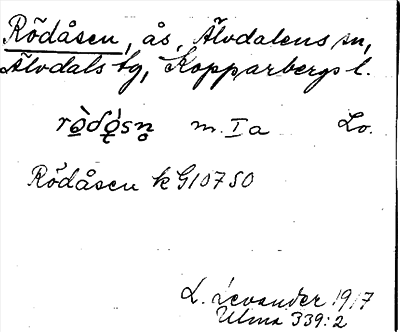 Rödåsen, ås, Älvdalens sn,
Älvdals tg, Kopparbergs l.
m. I a Lv.
Rödåsen k G10750
L. Levander 1917
Ulma 339:2